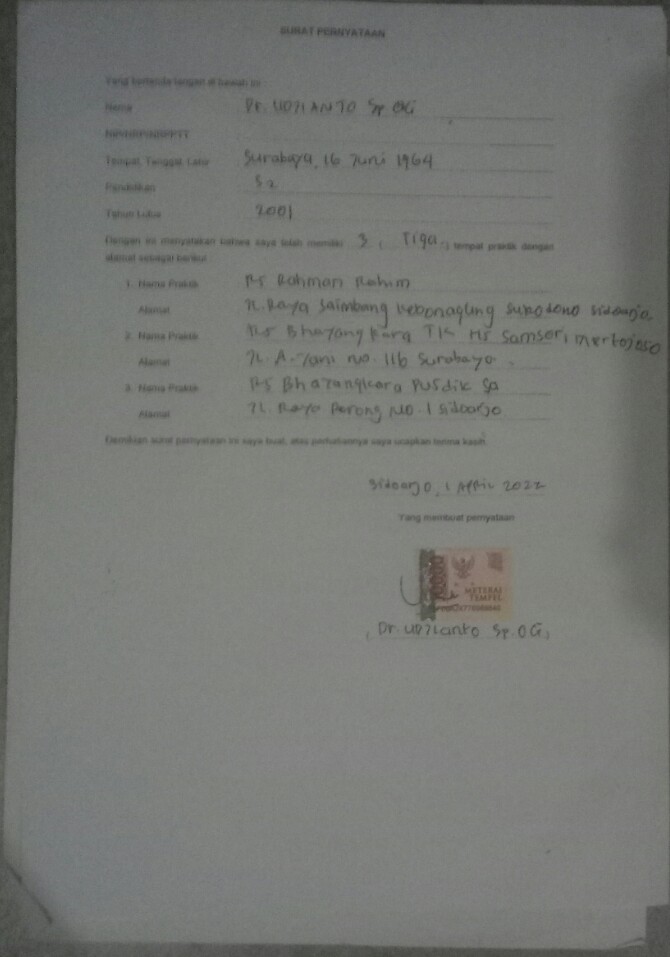 SURAT PERNYATAAN
Yang bertanda tangan di bawah ini :
Nama Dr. UDJIANTO Sp.OG
Tempat, Tanggal, Lahir Surabaya, 16 Juni 1964
Pendidikan S2
Tahun Lulus 2001
Dengan ini menyatakan bahwa saya telah memiliki 3 ( Tiga ) tempat praktik dengan
alamat sebagai berikut
1. Nama Praktik RS Rahman Rahim
Alamat Jl. Raya Saimbang Kebonagung Sukodono Sidoarjo
2. Nama Praktik RS Bhayangkara TK Samsoeri Mertojoso
Alamat Jl. A. Yani No. 116 Surabaya
3. Nama Praktik RS Bhayangkara Pusdik
Alamat Jl. Raya Porong No. 1 Sidoarjo
Demikian surat pernyataan ini saya buat, atas perhatiannya saya ucapkan terima kasih
Sidoarjo, 1 April 2022
Yang membuat pernyataan
10000
METERAI
TEMPEL
(Dr. UDJIanto Sp.OG)